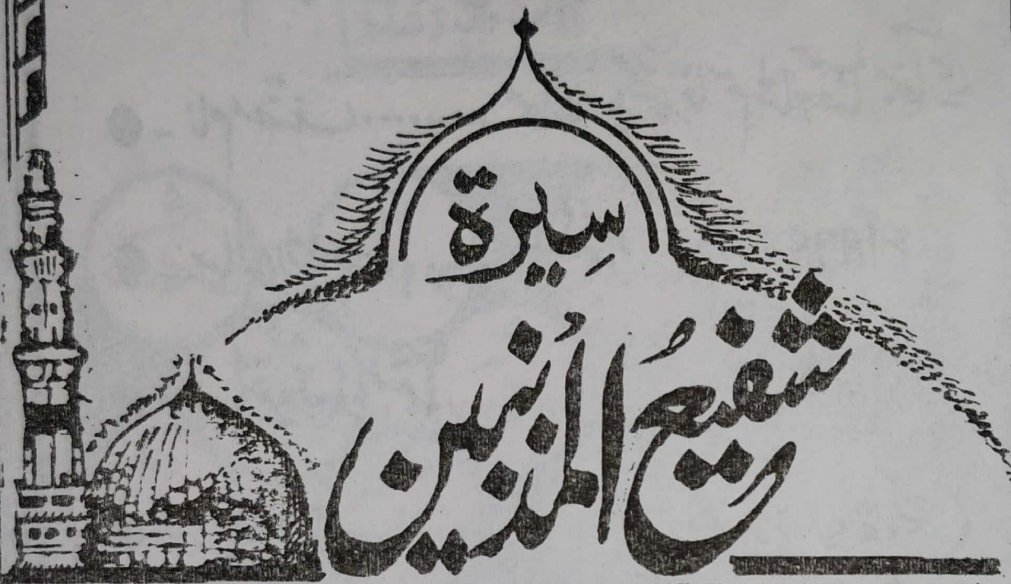 سِیرة
شفیعُ المُذنبین